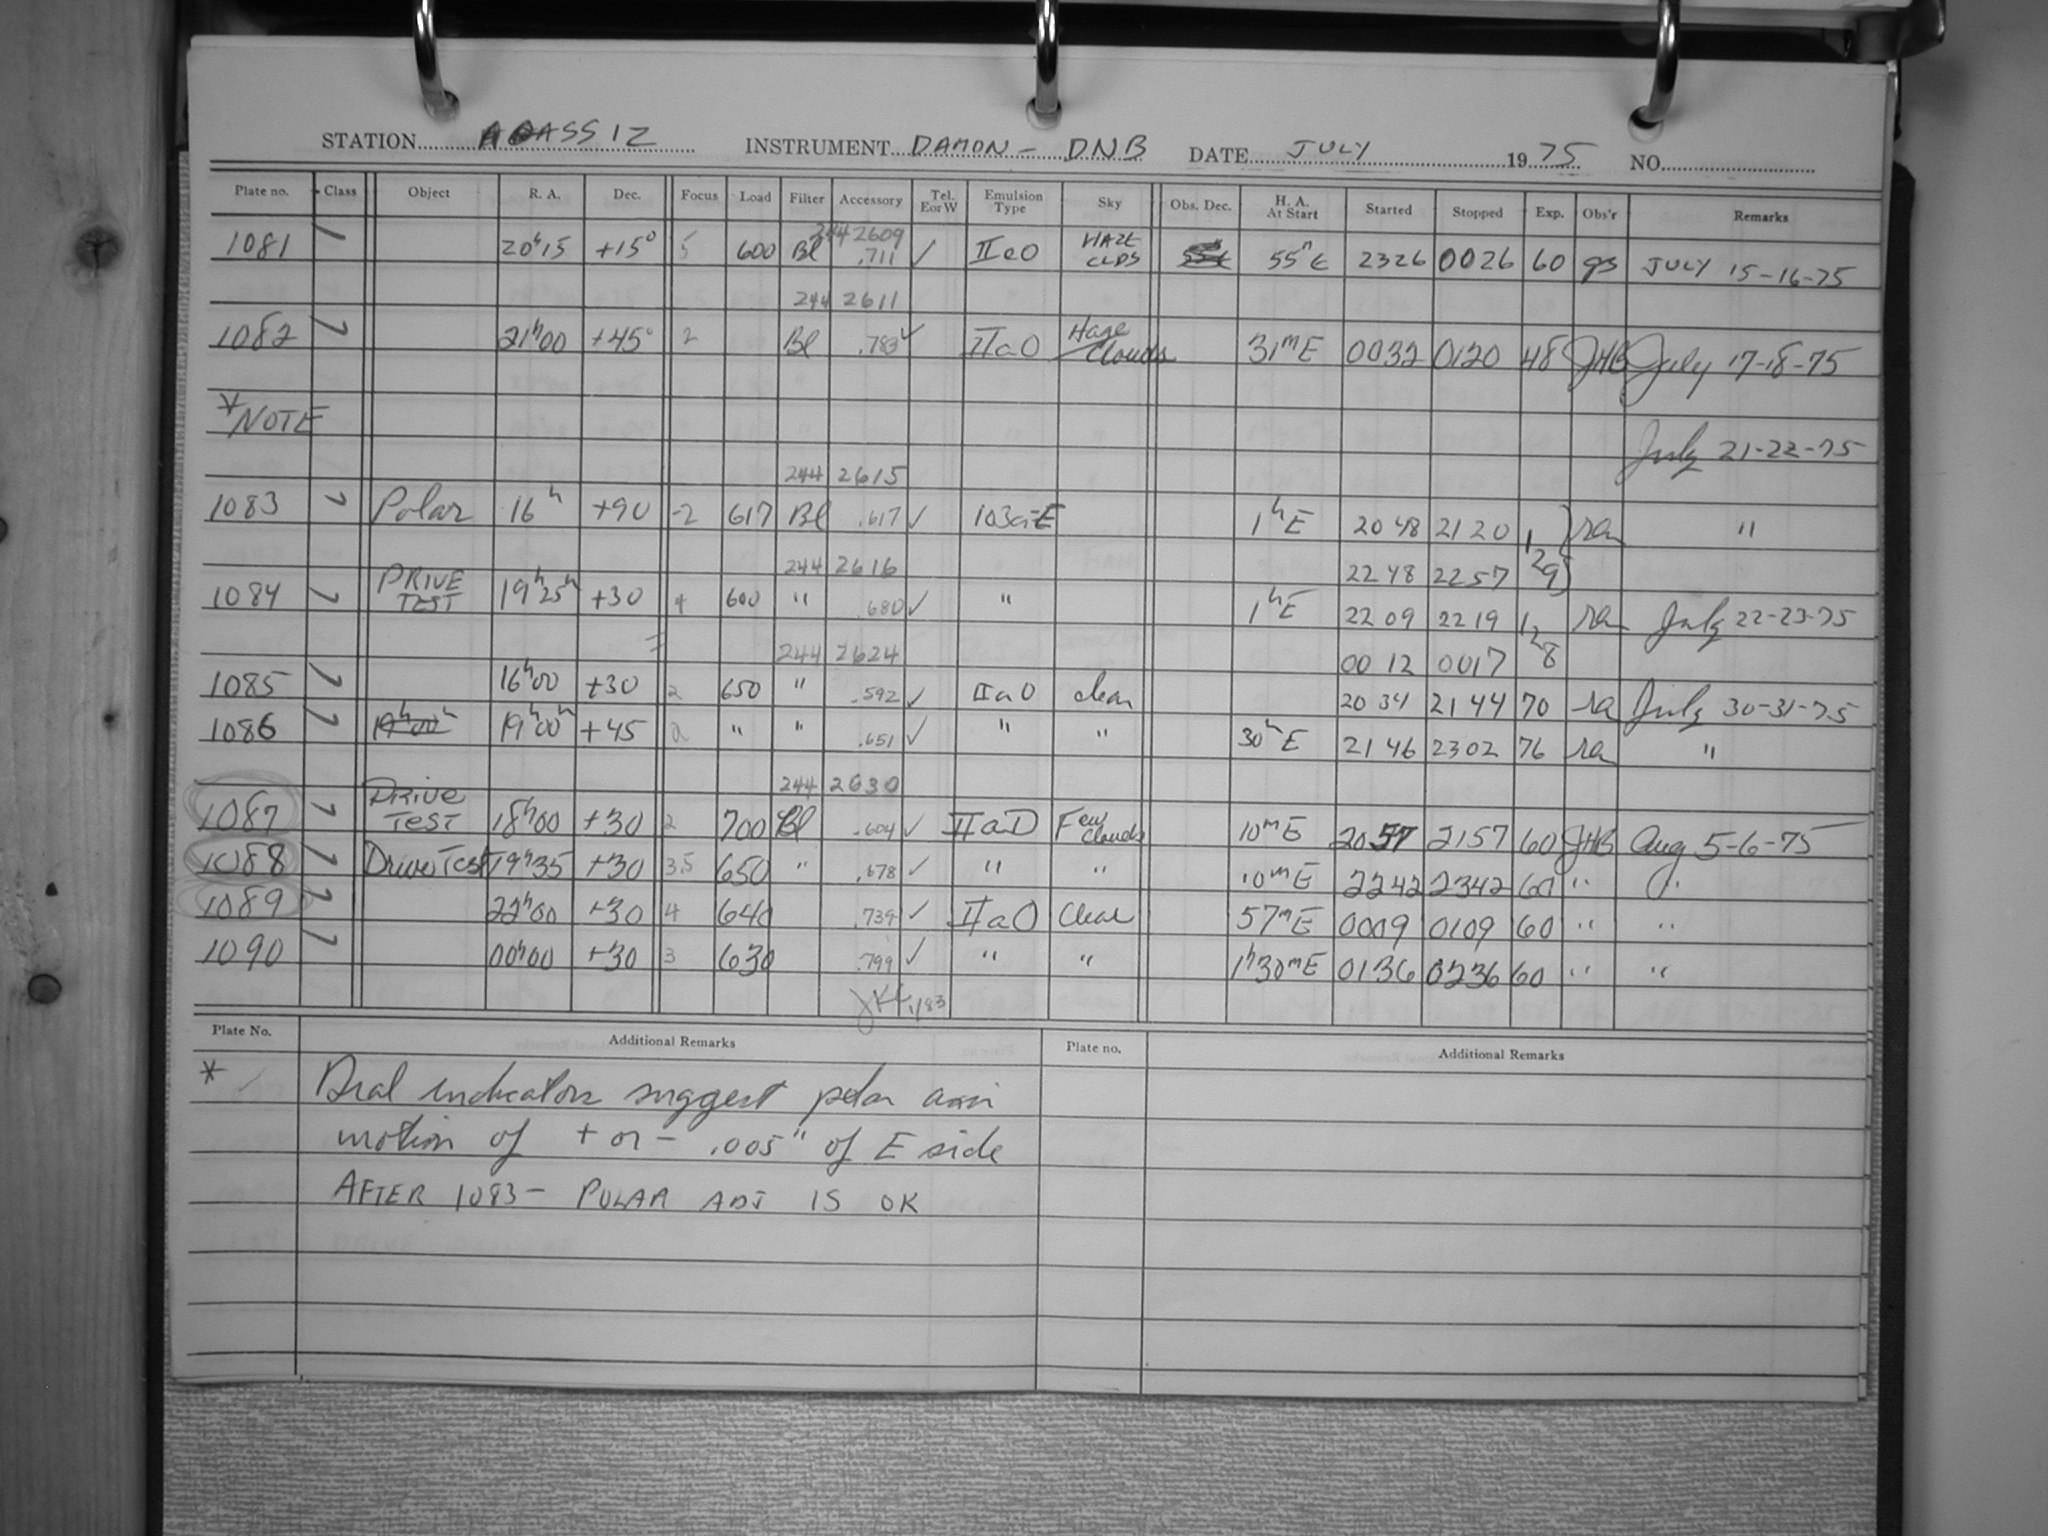 STATION AGASSIZ INSTRUMENT DAMON - DNB DATE JULY 1975 NO.
Plate no. Class Object R. A. Dec. Focus Load Filter Accessory Tel. E or W Emulsion Type Sky Obs. Dec. H. A. At Start Started Stopped Exp. Obs'r Remarks
244 2609
1081 20h15 +15° 5 600 Bl .711 ✓ IIaO HAZE CLDS 55m E 2326 0026 60 gs JULY 15-16-75
244 2611
1082 21h00 +45° 2 Bl .783 ✓ IIaO Haze Clouds 31mE 0032 0120 48 JHB July 17-18-75
*NOTE July 21-22-75
244 2615
1083 Polar 16h +90 -2 617 Bl .617 ✓ 103a-E 1hE 20 48 21 20 1 ra "
244 2616 22 48 22 57 29
1084 DRIVE TEST 19h25 +30 4 600 " .680 ✓ " 1hE 22 09 22 19 1 ra July 22-23-75
244 2624 00 12 0017 28
1085 16h00 +30 2 650 " .592 ✓ IIaO clear 20 34 21 44 70 ra July 30-31-75
1086 19h00 19h00 +45 2 " " .651 ✓ " " 30m E 21 46 23 02 76 ra "
244 2630
1087 DRIVE TEST 18h00 +30 2 700 Bl .604 ✓ IIaD Few Clouds 10mE 2057 2157 60 JHB Aug 5-6-75
1088 Drive Test 19h35 +30 3.5 650 " .678 ✓ " " 10mE 2242 2342 60 " "
1089 22h00 +30 4 640 .739 ✓ IIaO Clear 57mE 0009 0109 60 " "
1090 00h00 +30 3 630 .799 ✓ " " 1h30mE 0136 0236 60 " "
1/83
Plate No. Additional Remarks Plate no. Additional Remarks
* Dial indicators suggest polar axis
motion of + or - .005" of E side
AFTER 1083 - POLAR ADJ IS OK